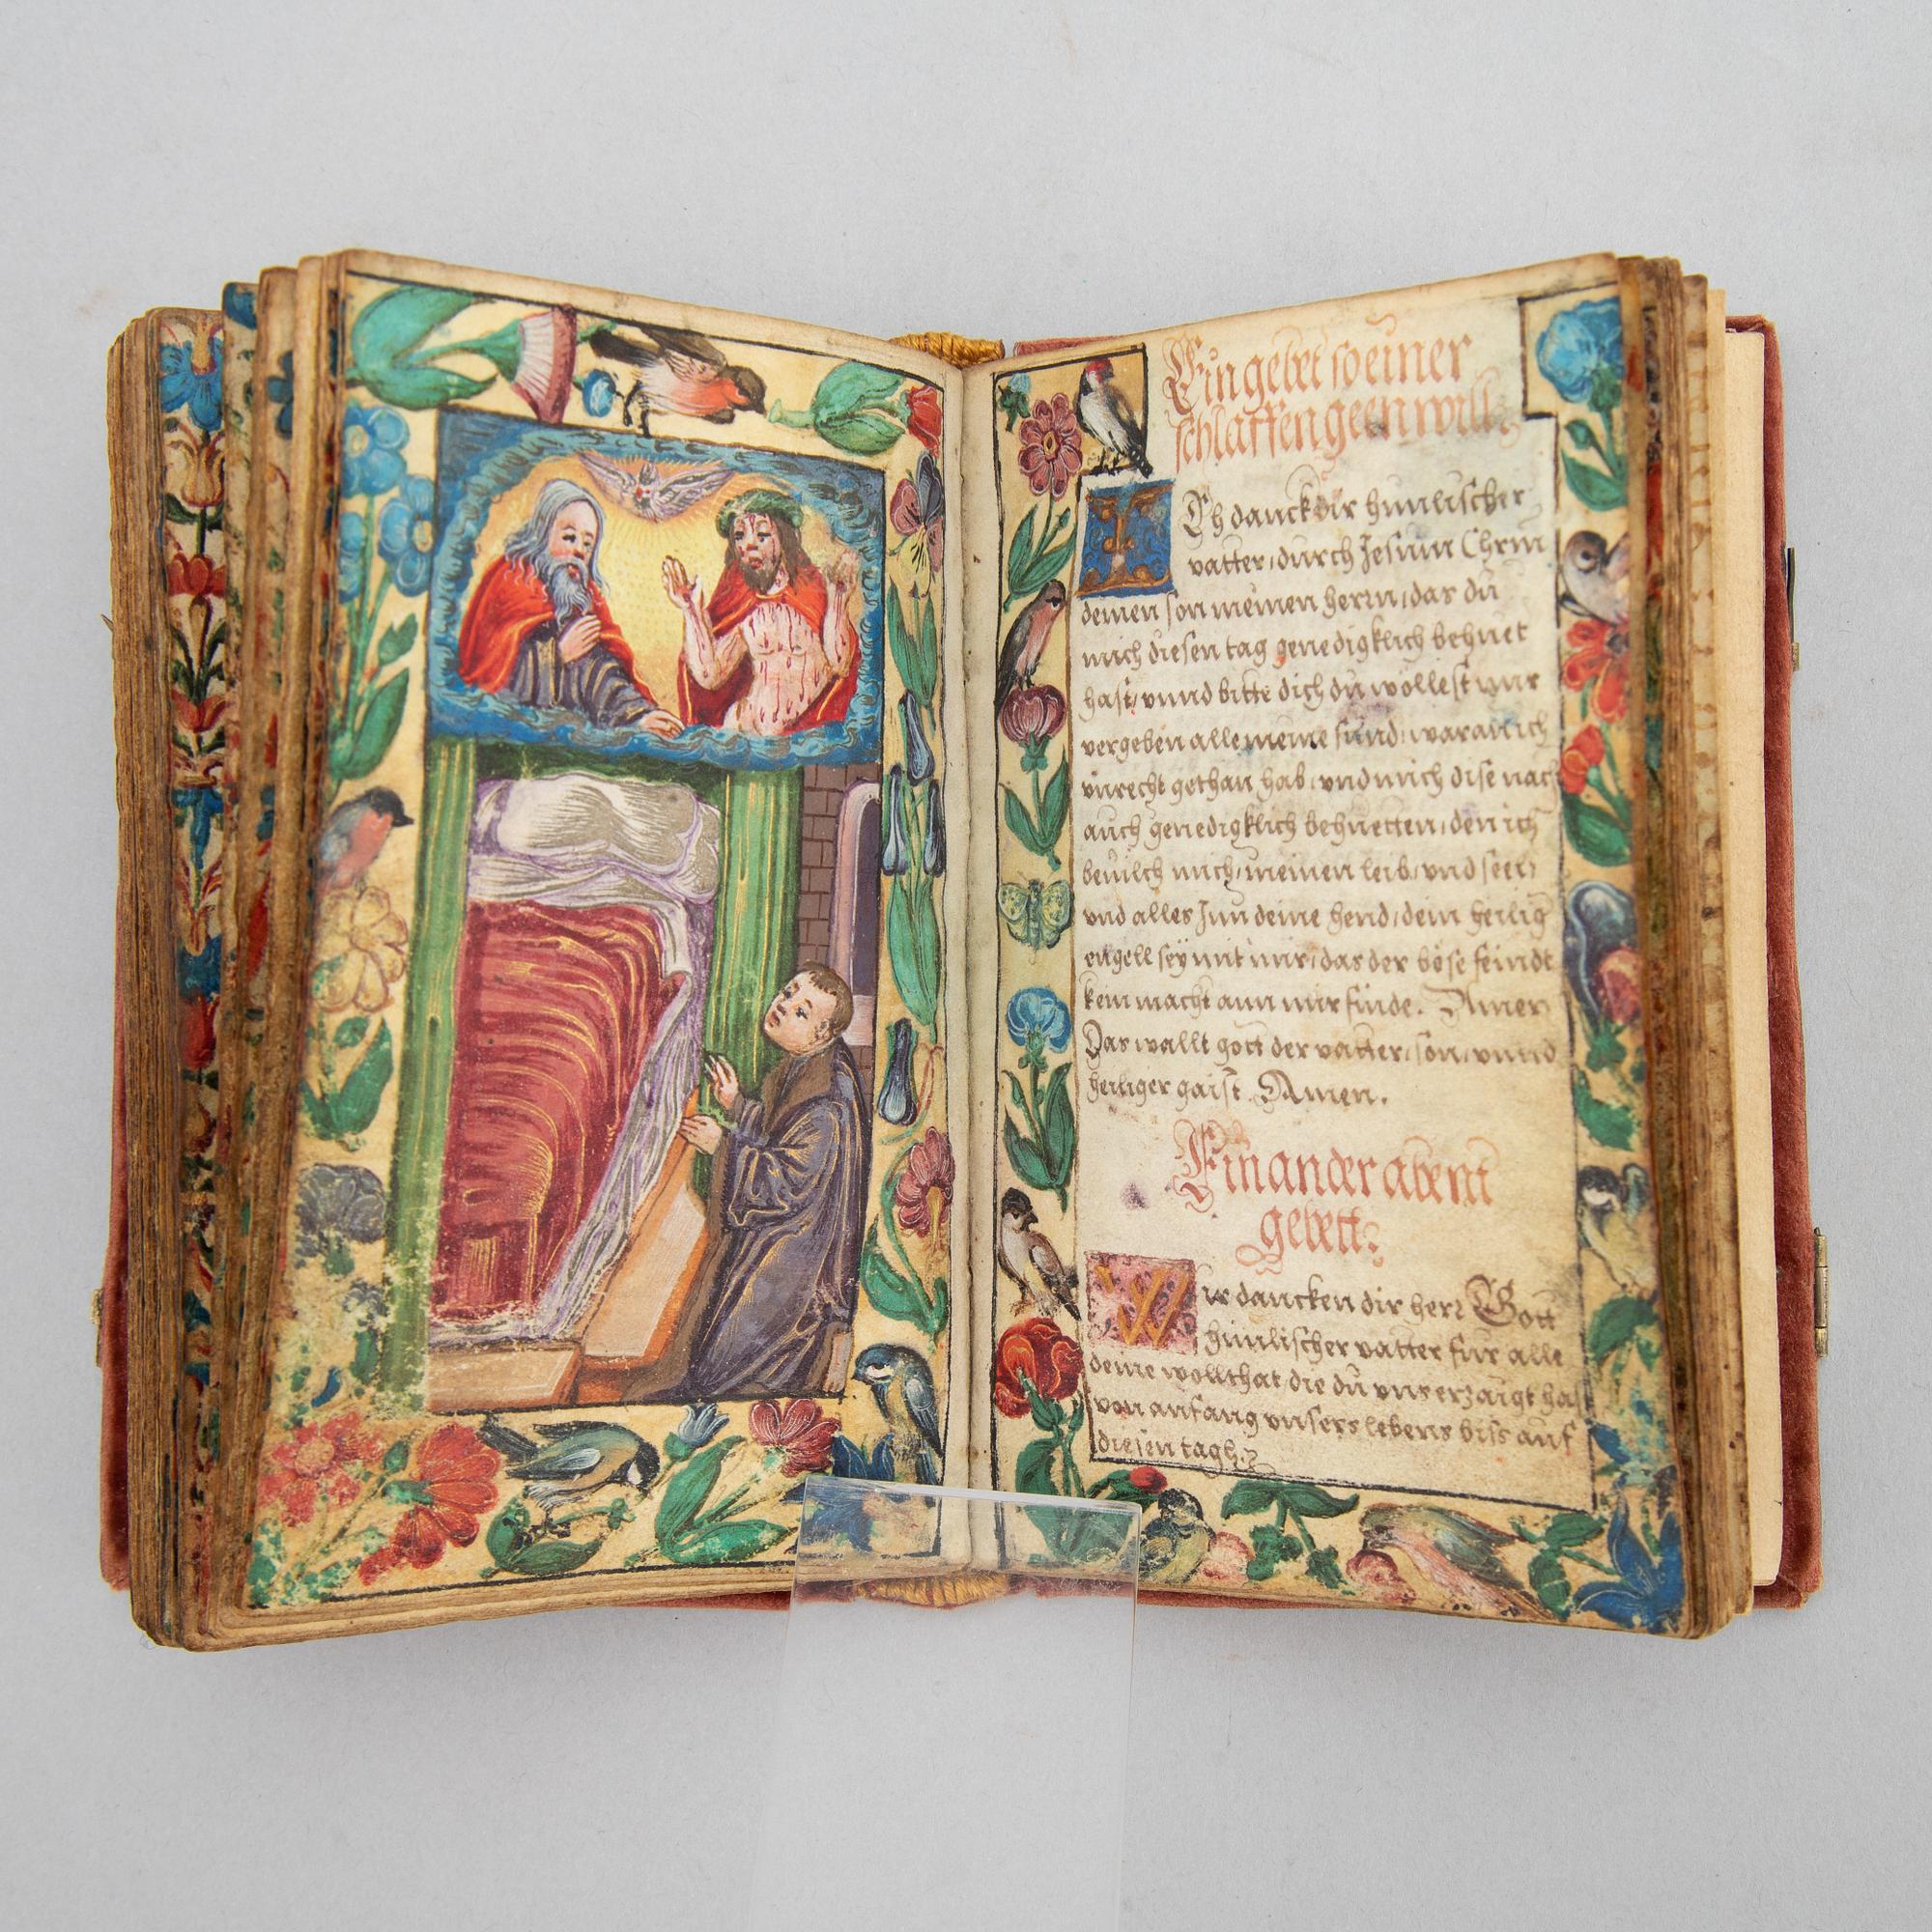 Ein gebet so einer
schlaffen geen will
ICh danck dir himlischer
vatter, durch Jesum Chrm
deinen son meinen herrn, das du
mich diesen tag genedigklich behuet
hast, vnnd bitte dich du wöllest mir
vergeben alle meine sünd, waran ich
vnrecht gethan hab, vnd mich dise nach
auch genedigklich behuetten, den ich
beuilch mich, meinen leib, vnd seel,
vnd alles Inn deine hend, dein heilig
engell seÿ mit mir, das der böse feindt
kein macht ann mir finde. Amen
Das wallt gott der vatter, son, vnnd
heiliger gaist. Amen.
Ein ander abent
gebett
Wir dancken dir herr Gott
himlischer vatter für alle
deine wollthat die du vns erzaigt has
von anfang vnsers lebens biss auf
diesen tagh.